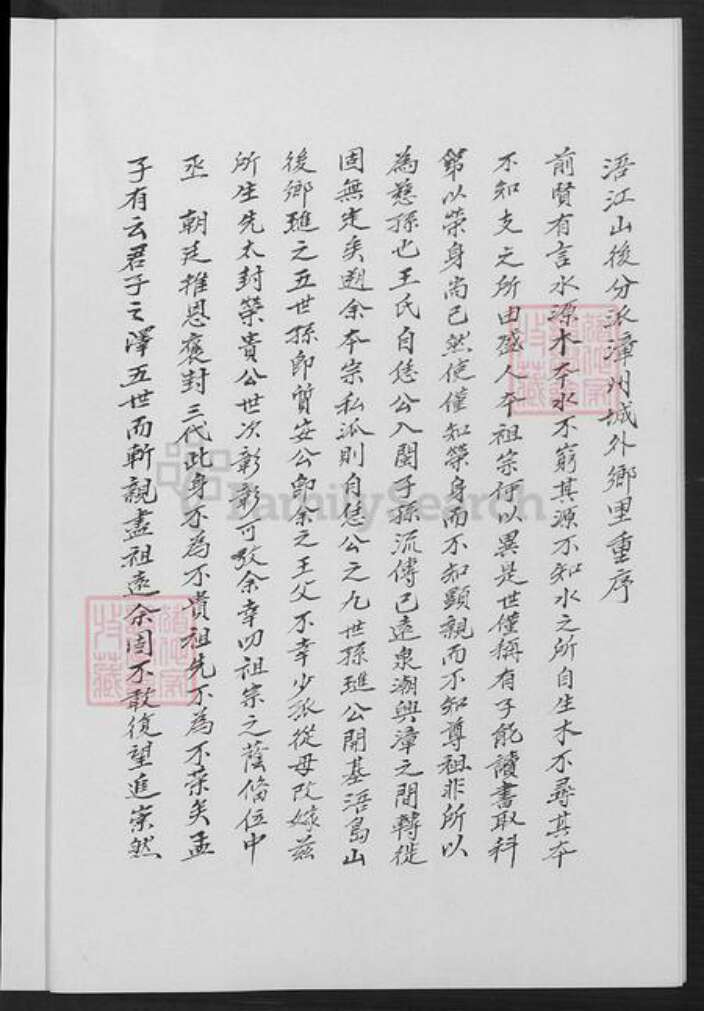 浯江山後分派漳州城外鄉里重序
前賢有言水源木本水不窮其源不知水之所自生木不尋其本
不知支之所由盛人本祖宗何以異是世僅稱有子能讀書取科
第以榮身尚已然使僅知榮身而不知顯親而不知尊祖非所以
為慈孫也王氏自恁公入閩子孫流傳已遠泉潮興漳之間轉徙
固無定矣遡余本宗私派則自恁公之九世孫璡公開基浯島山
後鄉璡之五世孫即質安公即余之王父不幸少孤從母改嫁茲
所生先太封榮貴公世次彰彰可攷余幸叨祖宗之蔭備位中
丞 朝廷推恩褒封三代此身不為不貴祖先不為不榮矣孟
子有云君子之澤五世而斬親盡祖遠余固不敢復望追崇然
FamilySearch